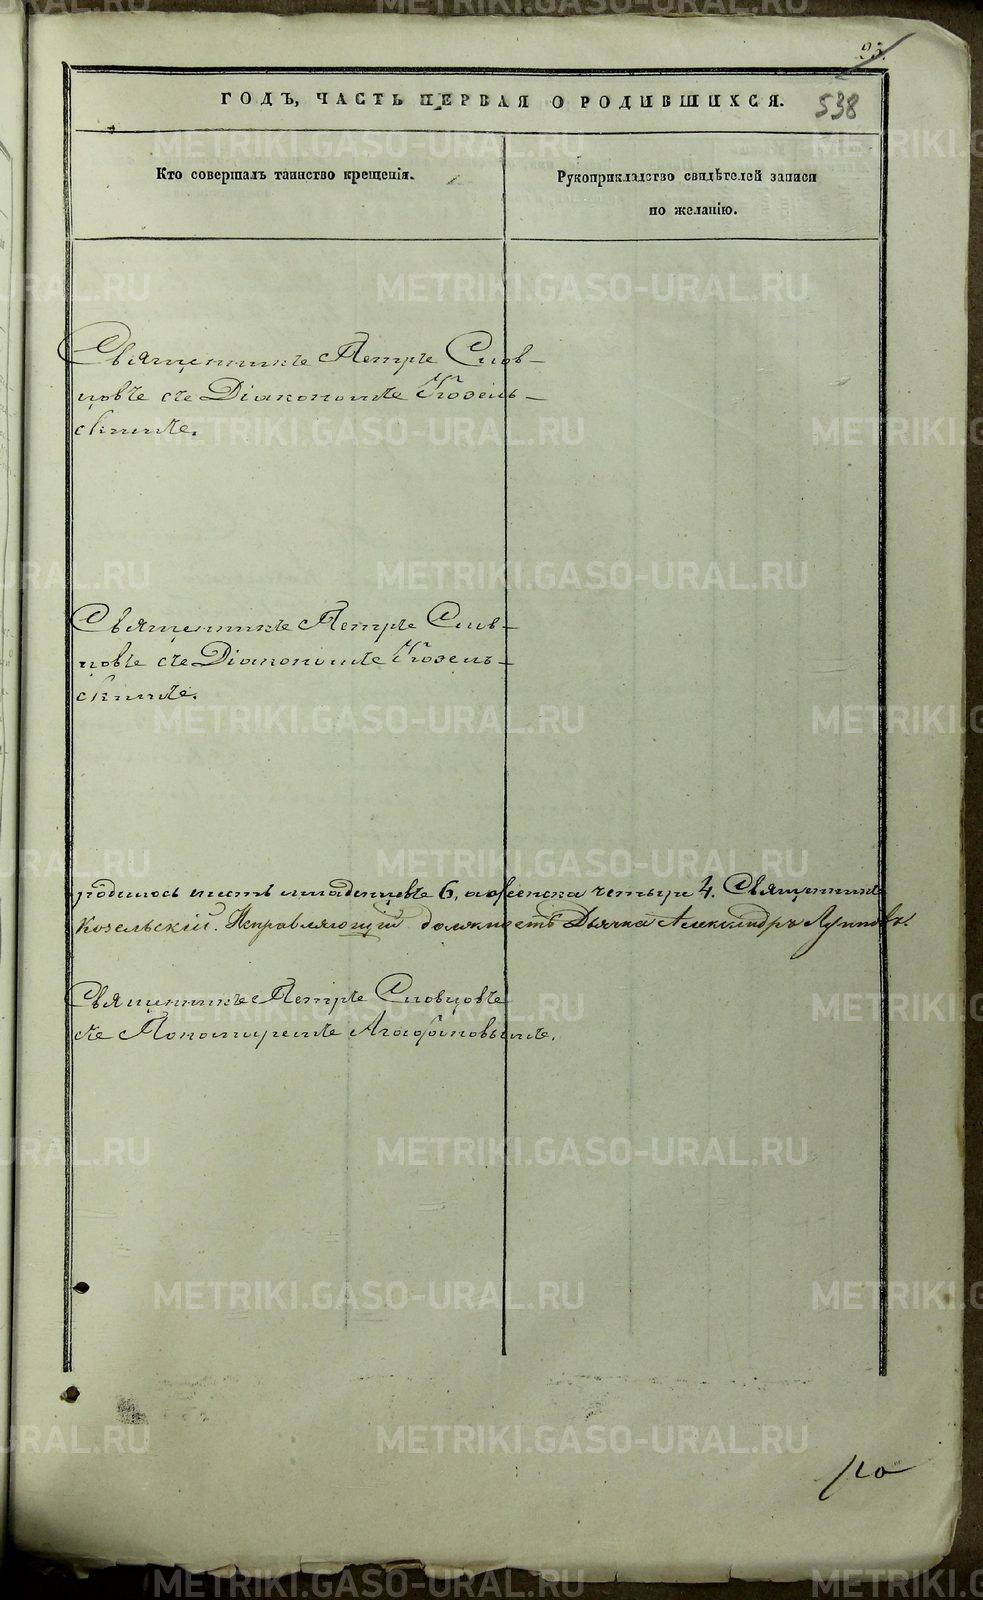 95.
538
ГОДЪ, ЧАСТЬ ПЕРВАЯ О РОДИВШИХСЯ.
Кто совершалъ таинство крещенія.
Рукоприкладство свидѣтелей записи
по желанію.
Священникъ Петръ Слов-
цовъ съ Діакономъ Козель-
скимъ.
Священникъ Петръ Слов-
цовъ съ Діакономъ Козель-
скимъ.
родилось шесть младенцевъ 6, а женска четыре 4. Священникъ
Козельскій. Исправляющій должность Дьячка Александръ Луповъ.
Священникъ Петръ Словцовъ
съ Пономаремъ Агафоновымъ.
METRIKI.GASO-URAL.RU